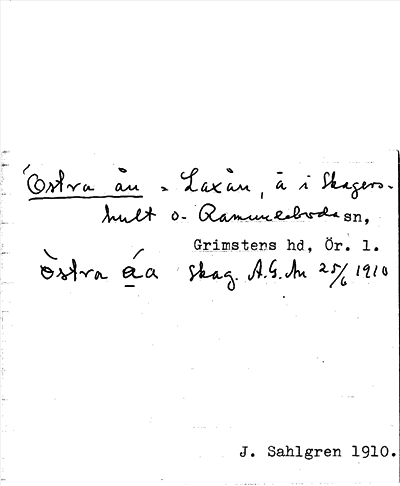 Östra ån = Laxån, å i Skagers-
hult o. Ramundeboda sn,
Grimstens hd, Ör. l.
òstra áa Skag. A.G.An 25/6 1910
J. Sahlgren 1910.